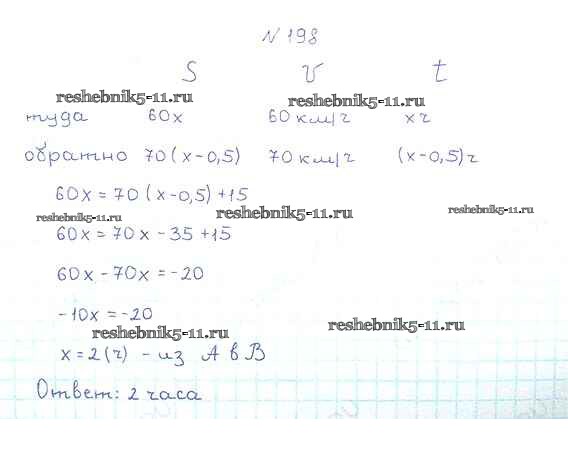 № 198
S V t
reshebnik5-11.ru reshebnik5-11.ru
туда 60х 60 км/ч х ч
обратно 70(х-0,5) 70 км/ч (х-0,5) ч
60х = 70(х-0,5)+15
reshebnik5-11.ru reshebnik5-11.ru reshebnik5-11.ru
60х = 70х - 35 +15
60х - 70х = -20
-10х = -20
reshebnik5-11.ru reshebnik5-11.ru
х = 2 (ч) - из А в В
Ответ: 2 часа